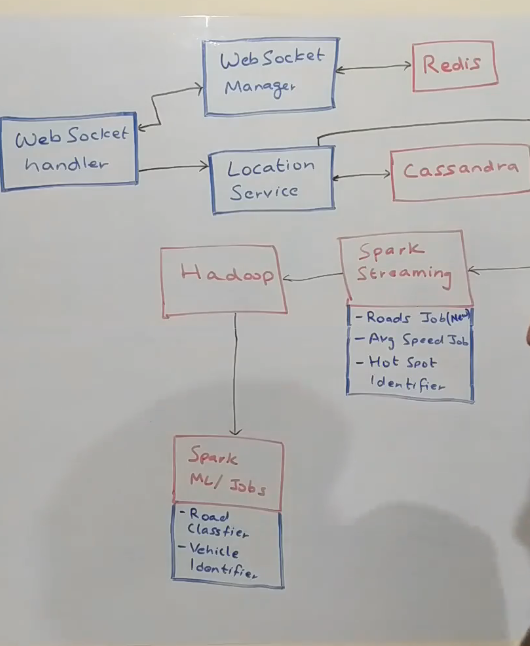 WebSocket
Manager
Redis
WebSocket
handler
Location
Service
Cassandra
Spark
Streaming
Hadoop
- Roads Job(New)
- Avg Speed Job
- Hot Spot
Identifier
Spark
ML/Jobs
- Road
Classfier
- Vehicle
Identifier